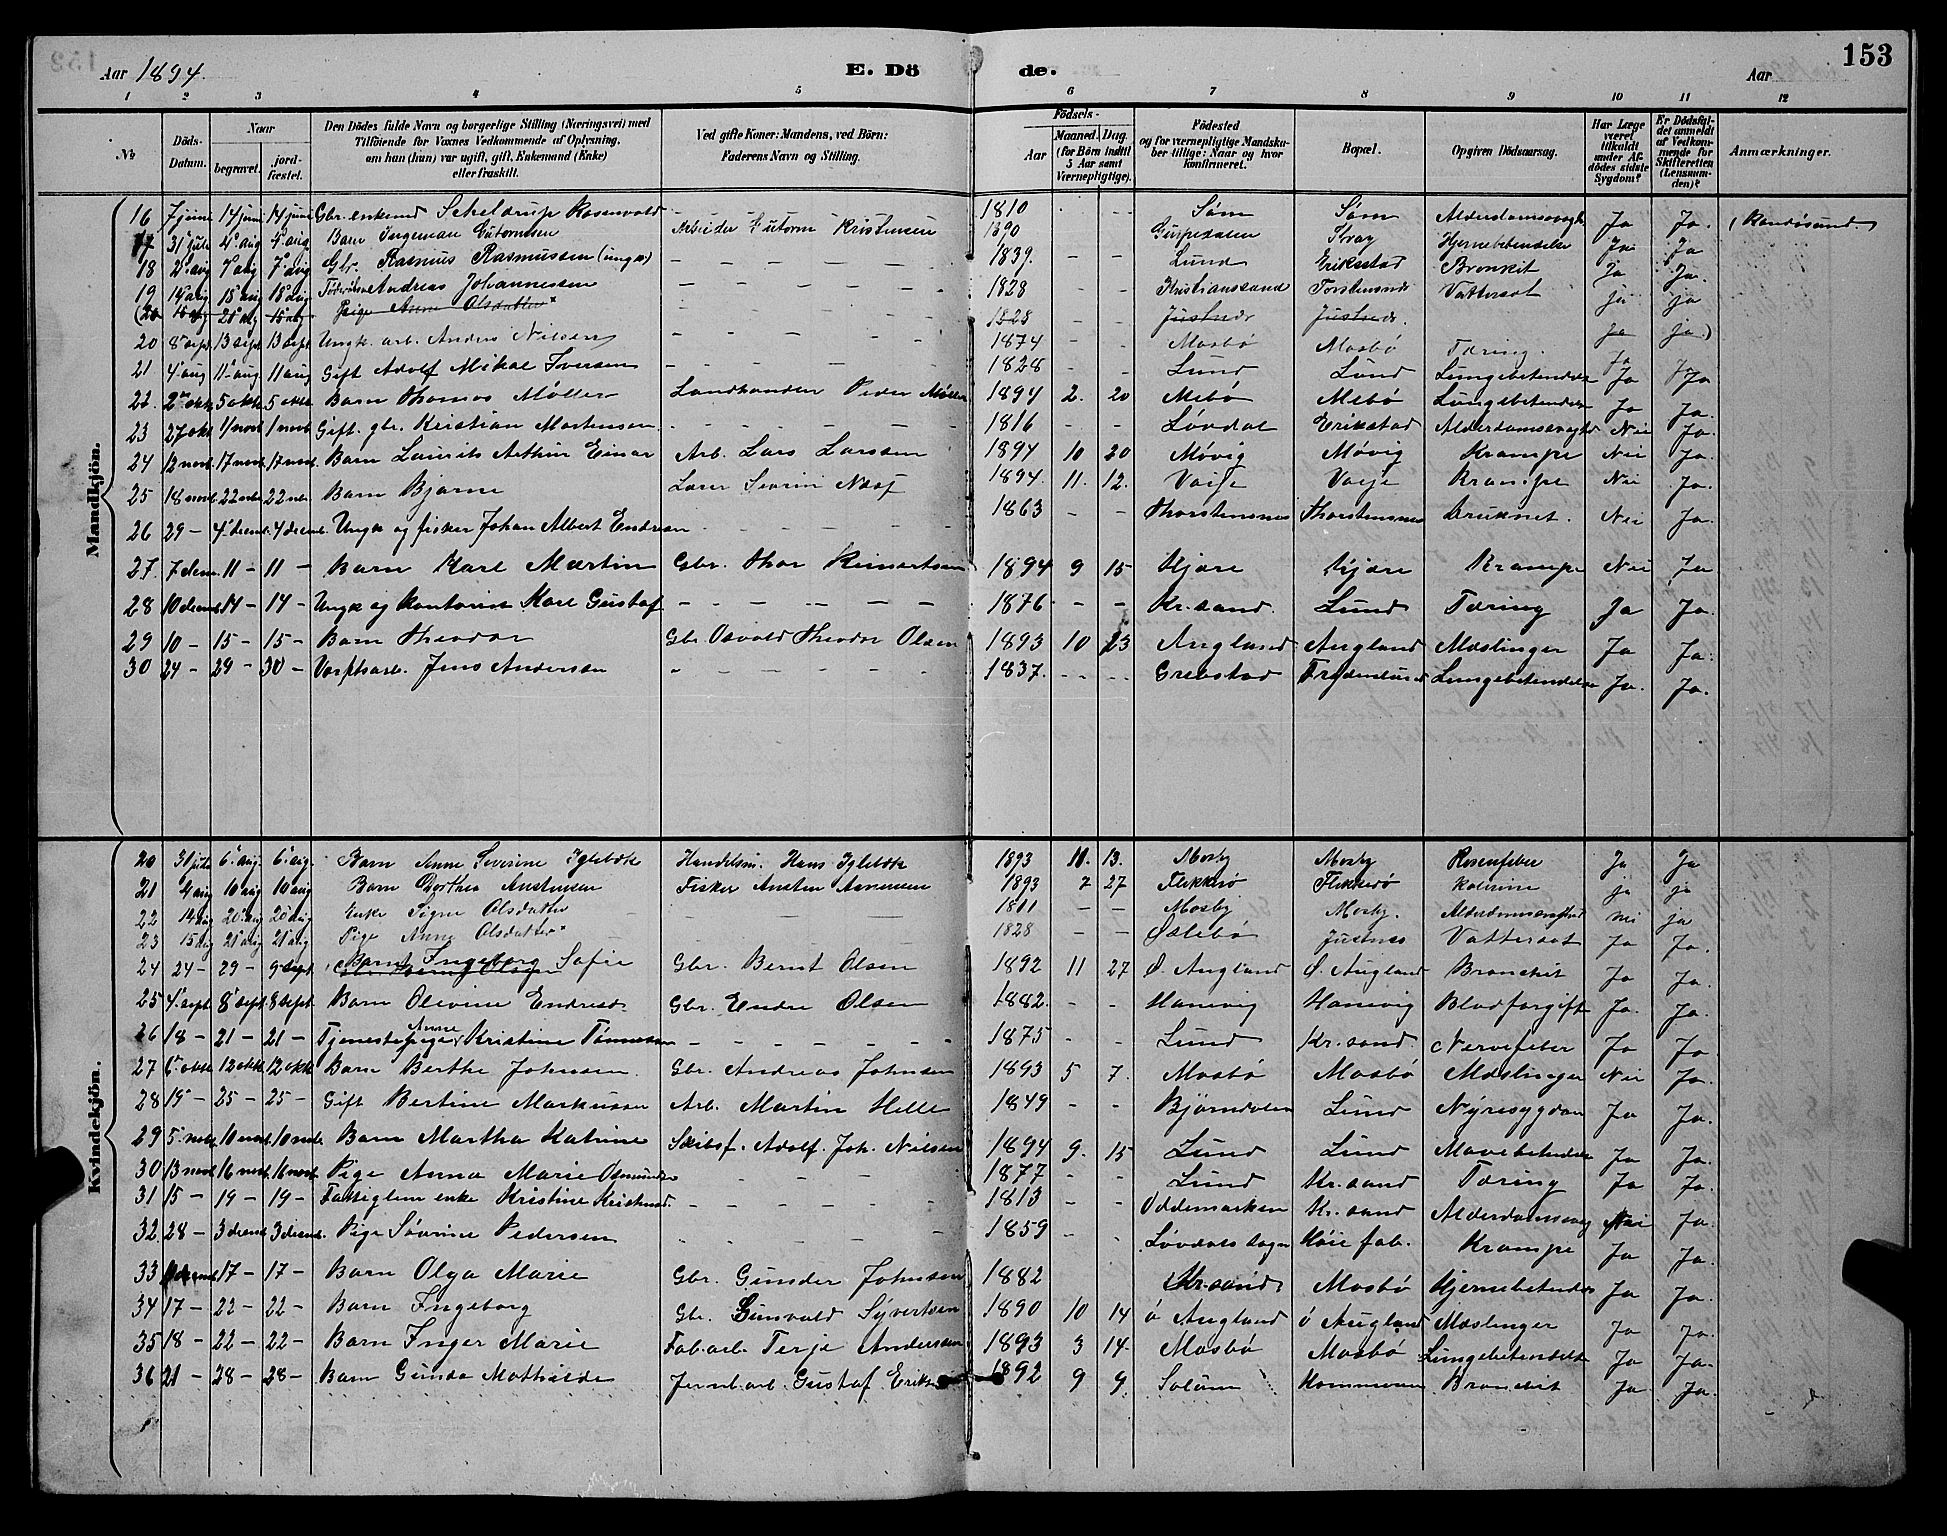 Aar 1894. E. Dö de. Aar 153
1 2 3 4 5 6 7 8 9 10 11 12
No Döds-Datum. Naar begravet. jordfæstet. Den Dödes fulde Navn og borgerlige Stilling (Næringsvei) med Tilföiende for Voxnes Vedkommende af Oplysning, om han (hun) var ugift, gift, Enkemand (Enke) eller fraskilt. Ved gifte Koner: Mandens, ved Börn: Faderens Navn og Stilling. Födsels- Aar Maaned Dag (for Börn indtil 5 Aar samt Værnepligtige). Födested og for værnepligtige Mandskaber tillige: Naar og hvor konfirmeret. Bopæl. Opgiven Dödsaarsag. Har Læge været tilkaldt under Afdödes sidste Sygdom? Er Dödsfaldet anmeldt af Vedkommende for Skifteretten (Lensmanden)? Anmærkninger.
Mandkjön.
16 7 juni 14 juni 14 juni Gbr. enkemd Scheldrup Rosenvold - 1810 - - Søm Søm Alderdomssvagh Ja Ja. (Randøsund.
17 31 juli 4 aug 4 aug Barn Ingeman Gutormsen Arbeider Gutorm Kristensen 1890 - - Stray Hjernebetendelse Ja Ja
18 2 aug 7 aug 7 aug Gbr. Rasmus Rasmussen (ungk) - - - 1839. - - Lund Eriksstad Bronkit Ja Ja.
19 14 aug 18 aug 18 aug Andreas Johannessen - - - 1828 - - Kristianssand Vattersot ja ja
(20 15 aug 21 aug 15 aug Pige Anne Olsdatter - - - 1828 - - Justnes Justnes. ja ja)
20 8 sept 13 sept 13 sept Ungk. arb. Anders Nilsen - - - 1874 - - Mosbø Mosbø Tæring.
21 4 aug 11 aug 11 aug Gift Adolf Mikal Iversen - - - 1828 - - Lund Lund Lungebetendelse Ja Ja
22. 2 okt. 5 okt. 5 okt. Barn Thomas Møller Landhandler Peder Møller 1894 2. 20 Mebø Mebø Lungebetendelse Ja Ja.
23 27 okt 1 novb 1 novb. Gift. gbr. Kristian Mortensen - - - 1816 - - Løvdal Erikstad Alderdomssvaghd Nei Ja.
24 12 novb. 17 novb. 17 novb. Barn Laurits Arthur Einar Arb. Lars Larssen 1894 10 20 Møvig Møvig Krampe Nei Ja.
25 18 novb. 22 nvb. 22 nvb. Barn Bjarne Lærer Severin Næss 1894. 11. 12. Voije Voije Krampe Nei Ja.
26 29 - 4 decmb. 4 decmb. Ungk og fisker Johan Albert Endresen - - - 1863 - - Thorstensnes Thorstensnes Druknet. Nei Ja.
27. 7 decm. 11 - 11 - Barn Karl Martin Gbr. Thor Reinertsen 1894 9 15 Hjære Hjære Krampe Nei Ja
28 10 decmb 14 - 14 - Ungk og kontorist Karl Gustaf - - - 1876 - - Kr.sand. Lund Tæring Ja Ja.
29 10 - 15 - 15 - Barn Theodor Gbr Osvald Theodor Olsen 1893 10 23 Augland Augland Mæslinger Ja Ja.
30 24 - 29 - 30 - Værftsarb. Jens Andersen - - - 1837. - - Grebstad Lungebetendelse Ja. Ja.
Kvindekjön.
20 31 juli 6 aug. 6 aug. Barn Anne Severine Iglebæk Handelsm. Hans Iglebæk 1893 11. 13. Mosby Mosby Rosenfeber Ja Ja
21 4 aug 10 aug 10 aug Barn Dorthea Austensen Fisker Austen Aanensen 1893 7 27 Flekkerø Flekkerø Kolerine ja ja
22 14 aug 20 aug 20 aug Enke Signe Olsdatter - - - 1811 - - Mosby Mosby. nei ja
23 15 aug 21 aug 21 aug Pige Anne Olsdatter - - - 1828 - - Justnes Vattersot Ja Ja.
24 24 - 29 - 9 sept. Barn Ingeborg Sofie Gbr. Bernt Olsen 1892 11 27 Ø. Augland Ø. Augland Bronchit Ja Ja.
25 4 sept. 8 sept. 8 sept. Barn Olevine Endresd. Gbr. Endre Olsen 1882. - - Hanevig Hanevig Blodforgift Ja. Ja.
26 18 - 21 - 21 - Tjenestepige Anne Kristine Tønnesen - - - 1875 - - Lund Kr.sand. Nervefeber Ja Ja
27 6 okt. 12 okt. 12 okt. Barn Berthe Johnsen. Gbr. Andreas Johnsen 1893 5 7. Mosbø Mosbø Mæslinger Nei Ja.
28 19 - 25 - 25 - Gift Bertine Markussen Arb. Martin Helle 1849 - - Bjørndalen Lund Nyresygdom Ja Ja.
29 5 novb. 10 novb. 10 novb. Barn Martha Katrine Skibsf. Adolf. Joh. Nilsen 1894 9. 15 Lund Lund Mavebetendelse Ja Ja.
30 13 novb. 16 novb. 16 novb. Pige Anna Marie Osmundsen - - - 1877 - - Lund Kr.sand Tæring Ja Ja.
31 15 - 19 - 19 - Fattiglem enke Kristine Kristensd. - - - 1813 - - Oddemarken Kr.sand Alderdomssvag Nei Ja.
32 28 - 3 decmb. 3 decmb. Pige Sørine Pedersen - - - 1859 - - Løvdals sogn Høie fab. Krampe Ja Ja.
33 17 - 17 - Barn Olga Marie Gbr. Gunder Johnsen 1882 Kr.sand Mosbø Hjernebetendelse Ja Ja.
34 17 - 22 - 22 - Barn Ingeborg Gbr. Gunvald Syvertsen 1890 10 14 Ø Augland Ø Augland Mæslinger Ja Ja.
35 18 - 22 - 22 - Barn Inger Marie Fab.arb. Terje Andersen 1893 3 14. Mosbø Mosbø Lungebetendelse Ja Ja.
36 21 - 28 - 28 - Barn Gunda Mathilde Jernb.arb. Gustaf Erik 1892 9 9. Solum Bronchit Ja Ja.